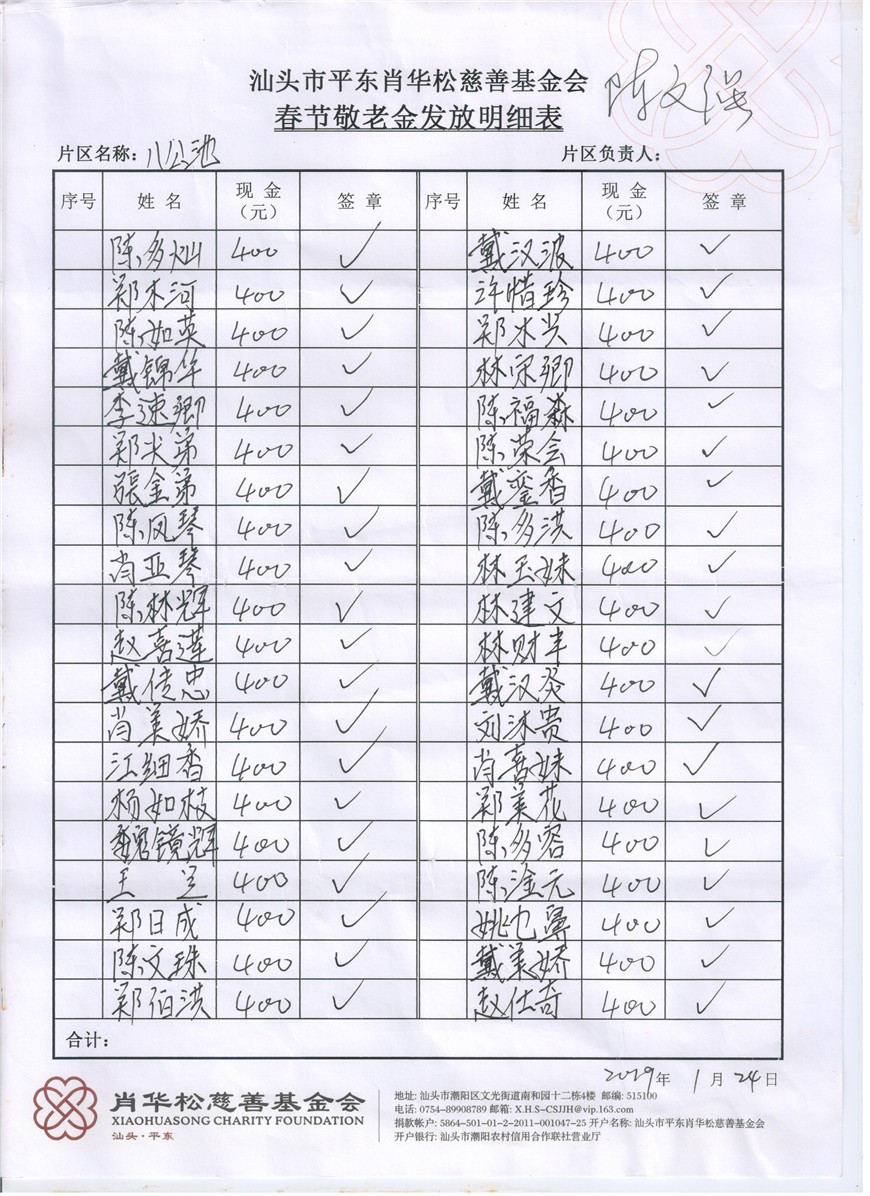 汕头市平东肖华松慈善基金会
春节敬老金发放明细表
陈文
片区名称：八公池 片区负责人：
序号 姓名 现金（元） 签章 序号 姓名 现金（元） 签章
陈多灿 400 ✓ 戴汉波 400 ✓
郑木河 400 ✓ 许惜珍 400 ✓
陈如英 400 ✓ 郑木兴 400 ✓
戴锦华 400 ✓ 林宋卿 400 ✓
李速卿 400 ✓ 陈福森 400 ✓
郑尖弟 400 ✓ 陈荣会 400 ✓
張金弟 400 ✓ 戴銮香 400 ✓
陈凤琴 400 ✓ 陈多洪 400 ✓
肖亚琴 400 ✓ 林玉妹 400 ✓
陈林辉 400 ✓ 林建文 400 ✓
赵喜莲 400 ✓ 林财丰 400 ✓
戴佳忠 400 ✓ 戴汉 400 ✓
肖美娇 400 ✓ 刘沐贵 400 ✓
江细香 400 ✓ 肖喜妹 400 ✓
杨如枝 400 ✓ 郑美花 400 ✓
魏镜辉 400 ✓ 陈多容 400 ✓
王兰 400 ✓ 陈淦元 400 ✓
郑日成 400 ✓ 姚 鼻 400 ✓
陈文珠 400 ✓ 戴美娇 400 ✓
郑伯洪 400 ✓ 赵仕奇 400 ✓
合计：
2019年 1月 24日
肖华松慈善基金会
XIAOHUASONG CHARITY FOUNDATION
汕头·平东
地址: 汕头市潮阳区文光街道南和园十二栋4楼 邮编: 515100
电话: 0754-89908789 邮箱: X.H.S-CSJJH@vip.163.com
捐款帐户: 5864-501-01-2-2011-001047-25 开户名称: 汕头市平东肖华松慈善基金会
开户银行: 汕头市潮阳农村信用合作联社营业厅